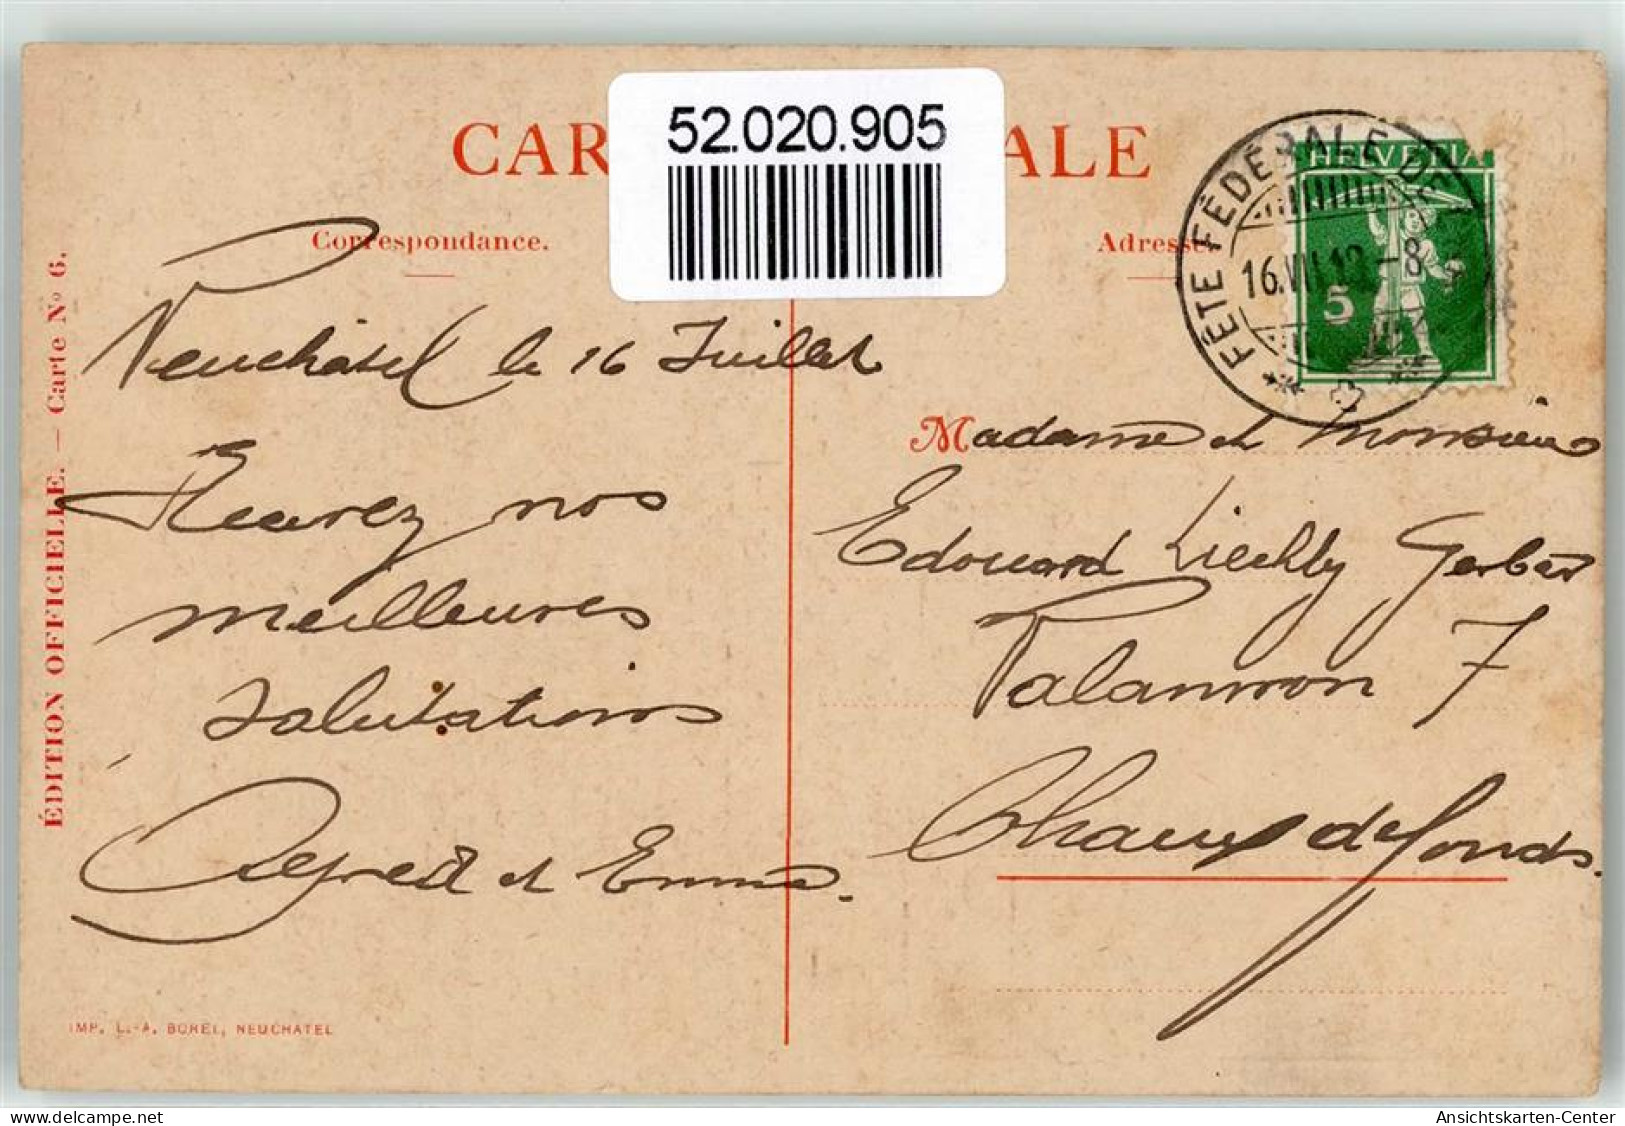 52.020.905
CAR ALE
Correspondance.
Adresse.
ÉDITION OFFICIELLE. — Carte Nº 6.
HELVETIA
5
FÊTE FÉDÉRALE DE
16.VII.12.-8
Neuchâtel le 16 Juillet
Recevez nos
meilleures
salutations
Alfred et Emma.
Madame et Monsieur
Edouard Liechty Gerber
7
Chaux de fonds.
IMP. L.-A. BOREL, NEUCHATEL
www.delcampe.net
Ansichtskarten-Center